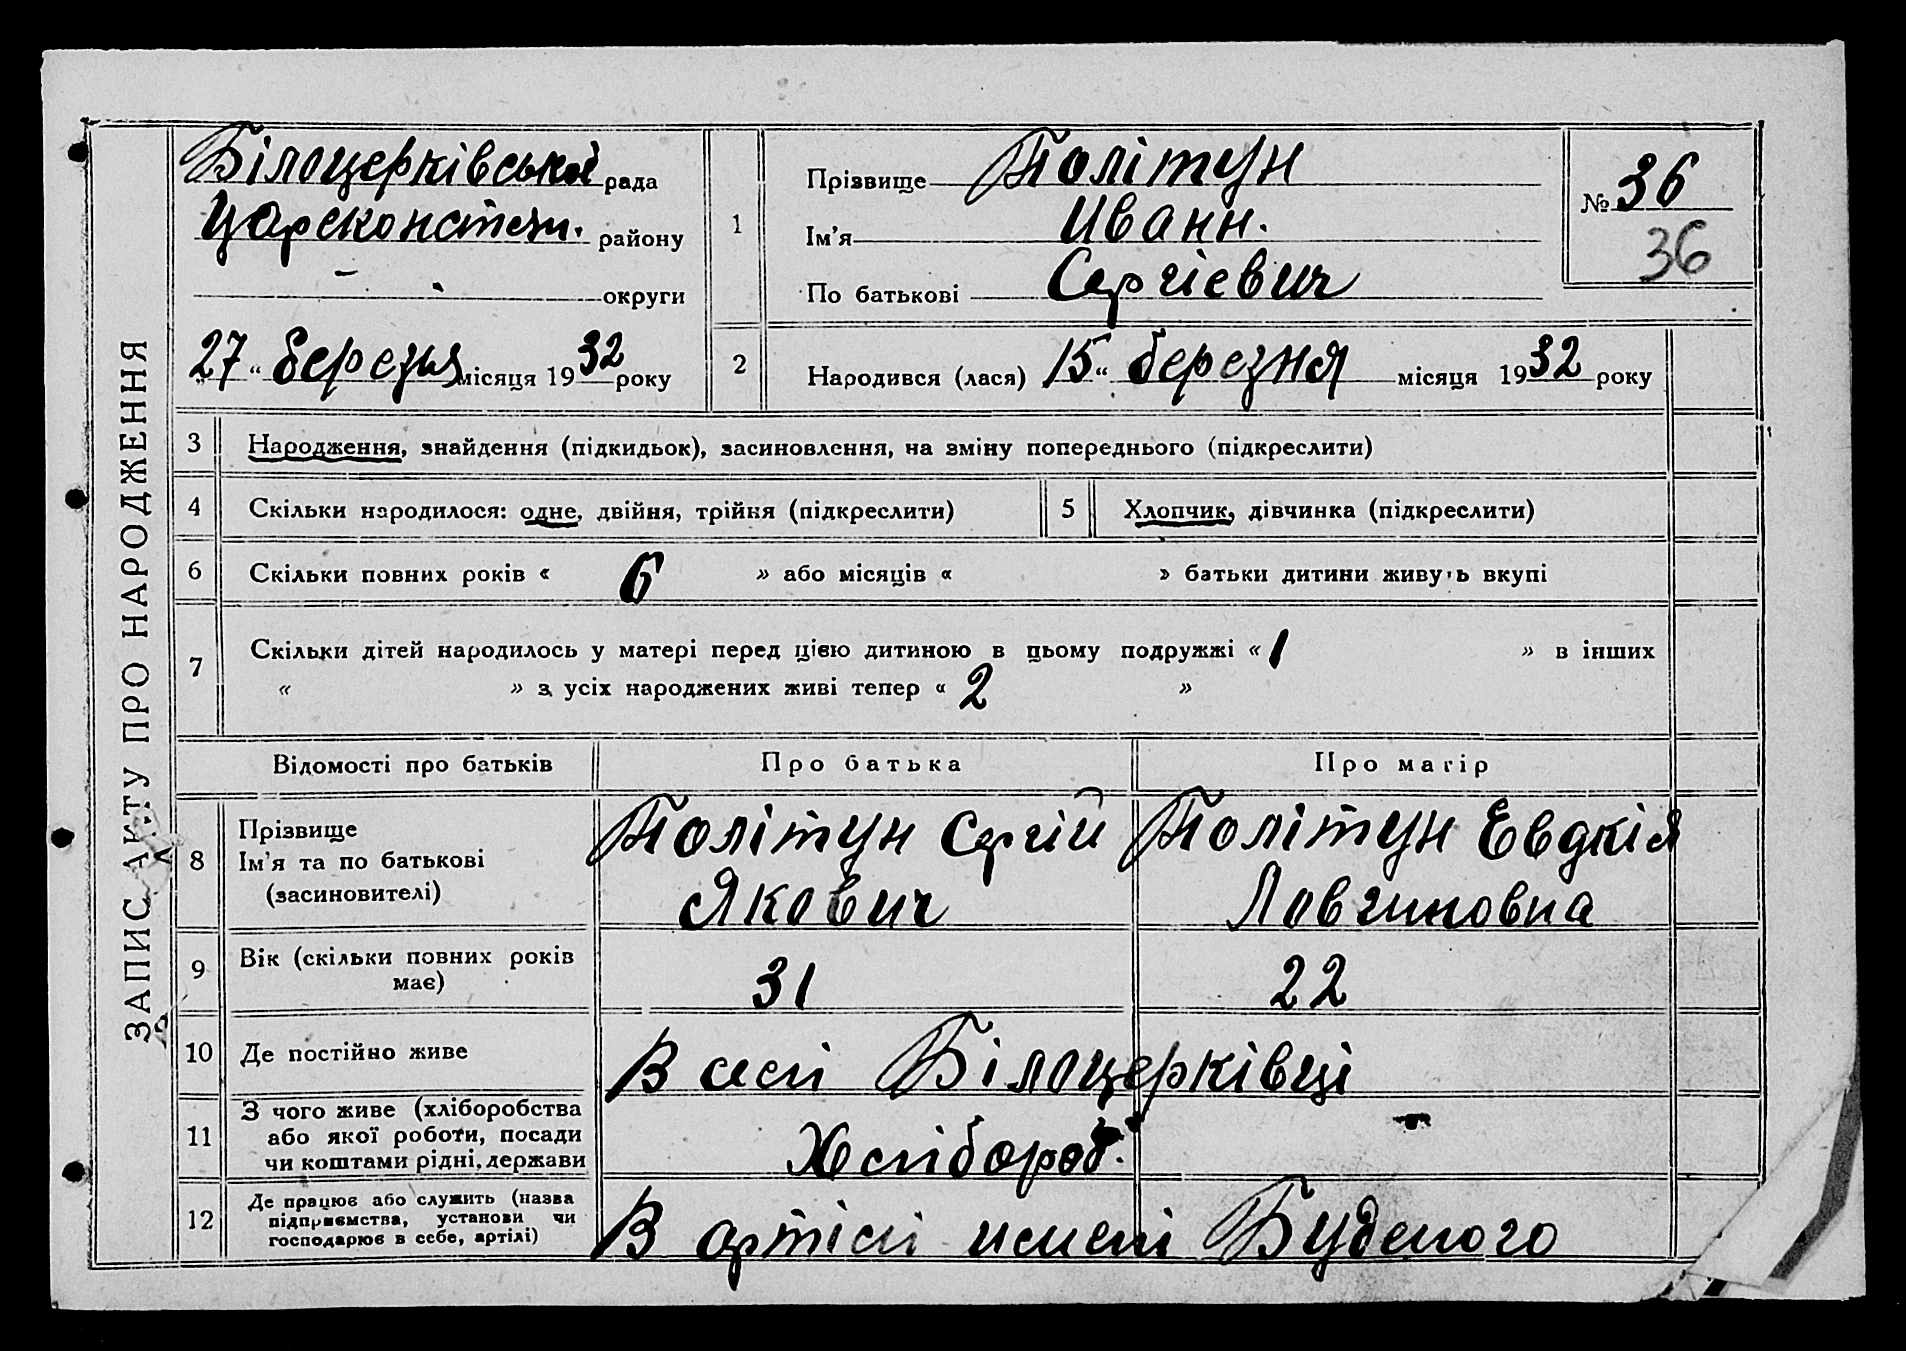 ЗАПИС АКТУ ПРО НАРОДЖЕННЯ
Білоцерківської рада
Царсконстен. району
- округи
27 " березня місяця 1932 року
1
Прізвище Політун
Ім'я Иванн.
По батькові Сергієвич
№ 36
36
2
Народився (лася) 15 " березня місяця 1932 року
3 Народження, знайдення (підкидьок), засиновлення, на зміну попереднього (підкреслити)
4 Скільки народилося: одне, двійня, трійня (підкреслити)
5 Хлопчик, дівчинка (підкреслити)
6 Скільки повних років « 6 » або місяців « » батьки дитини живуть вкупі
7 Скільки дітей народилось у матері перед цією дитиною в цьому подружжі « 1 » в інших
« » з усіх народжених живі тепер « 2 »
Відомості про батьків
Про батька
Про матір
8
Прізвище
Ім'я та по батькові
(засиновителі)
Політун Сергій
Якович
Політун Евдкія
Логвиновна
9
Вік (скільки повних років
має)
31
22
10 Де постійно живе
В селі Білоцерківці
11
З чого живе (хліборобства
або якої роботи, посади
чи коштами рідні, держави
Хлібороб.
-
12
Де працює або служить (назва
підприємства, установи чи
господарює в себе, артілі)
В артілі имені Буденого